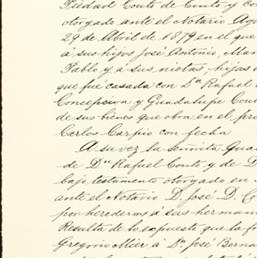 Piedad Couto de Couto y con
otorgado ante el Notario
29 de Abril de 1879 en el que
á sus hijos José Antonio, Man
Pablo y á sus nietas, hijas
que fué casada con Dn Rafael
Concepcion y Guadalupe Cou
de sus bienes que obra en el pro
Carlos Carpio con fecha
A su vez la Señorita Gua
de Dn Rafael Couto y de D
bajo testamento otorgado en
ante el Notario D. José D. C
por herederos á sus herman
Resulta de lo expuesto que la f
Gregorio Mier á Dn José Berna